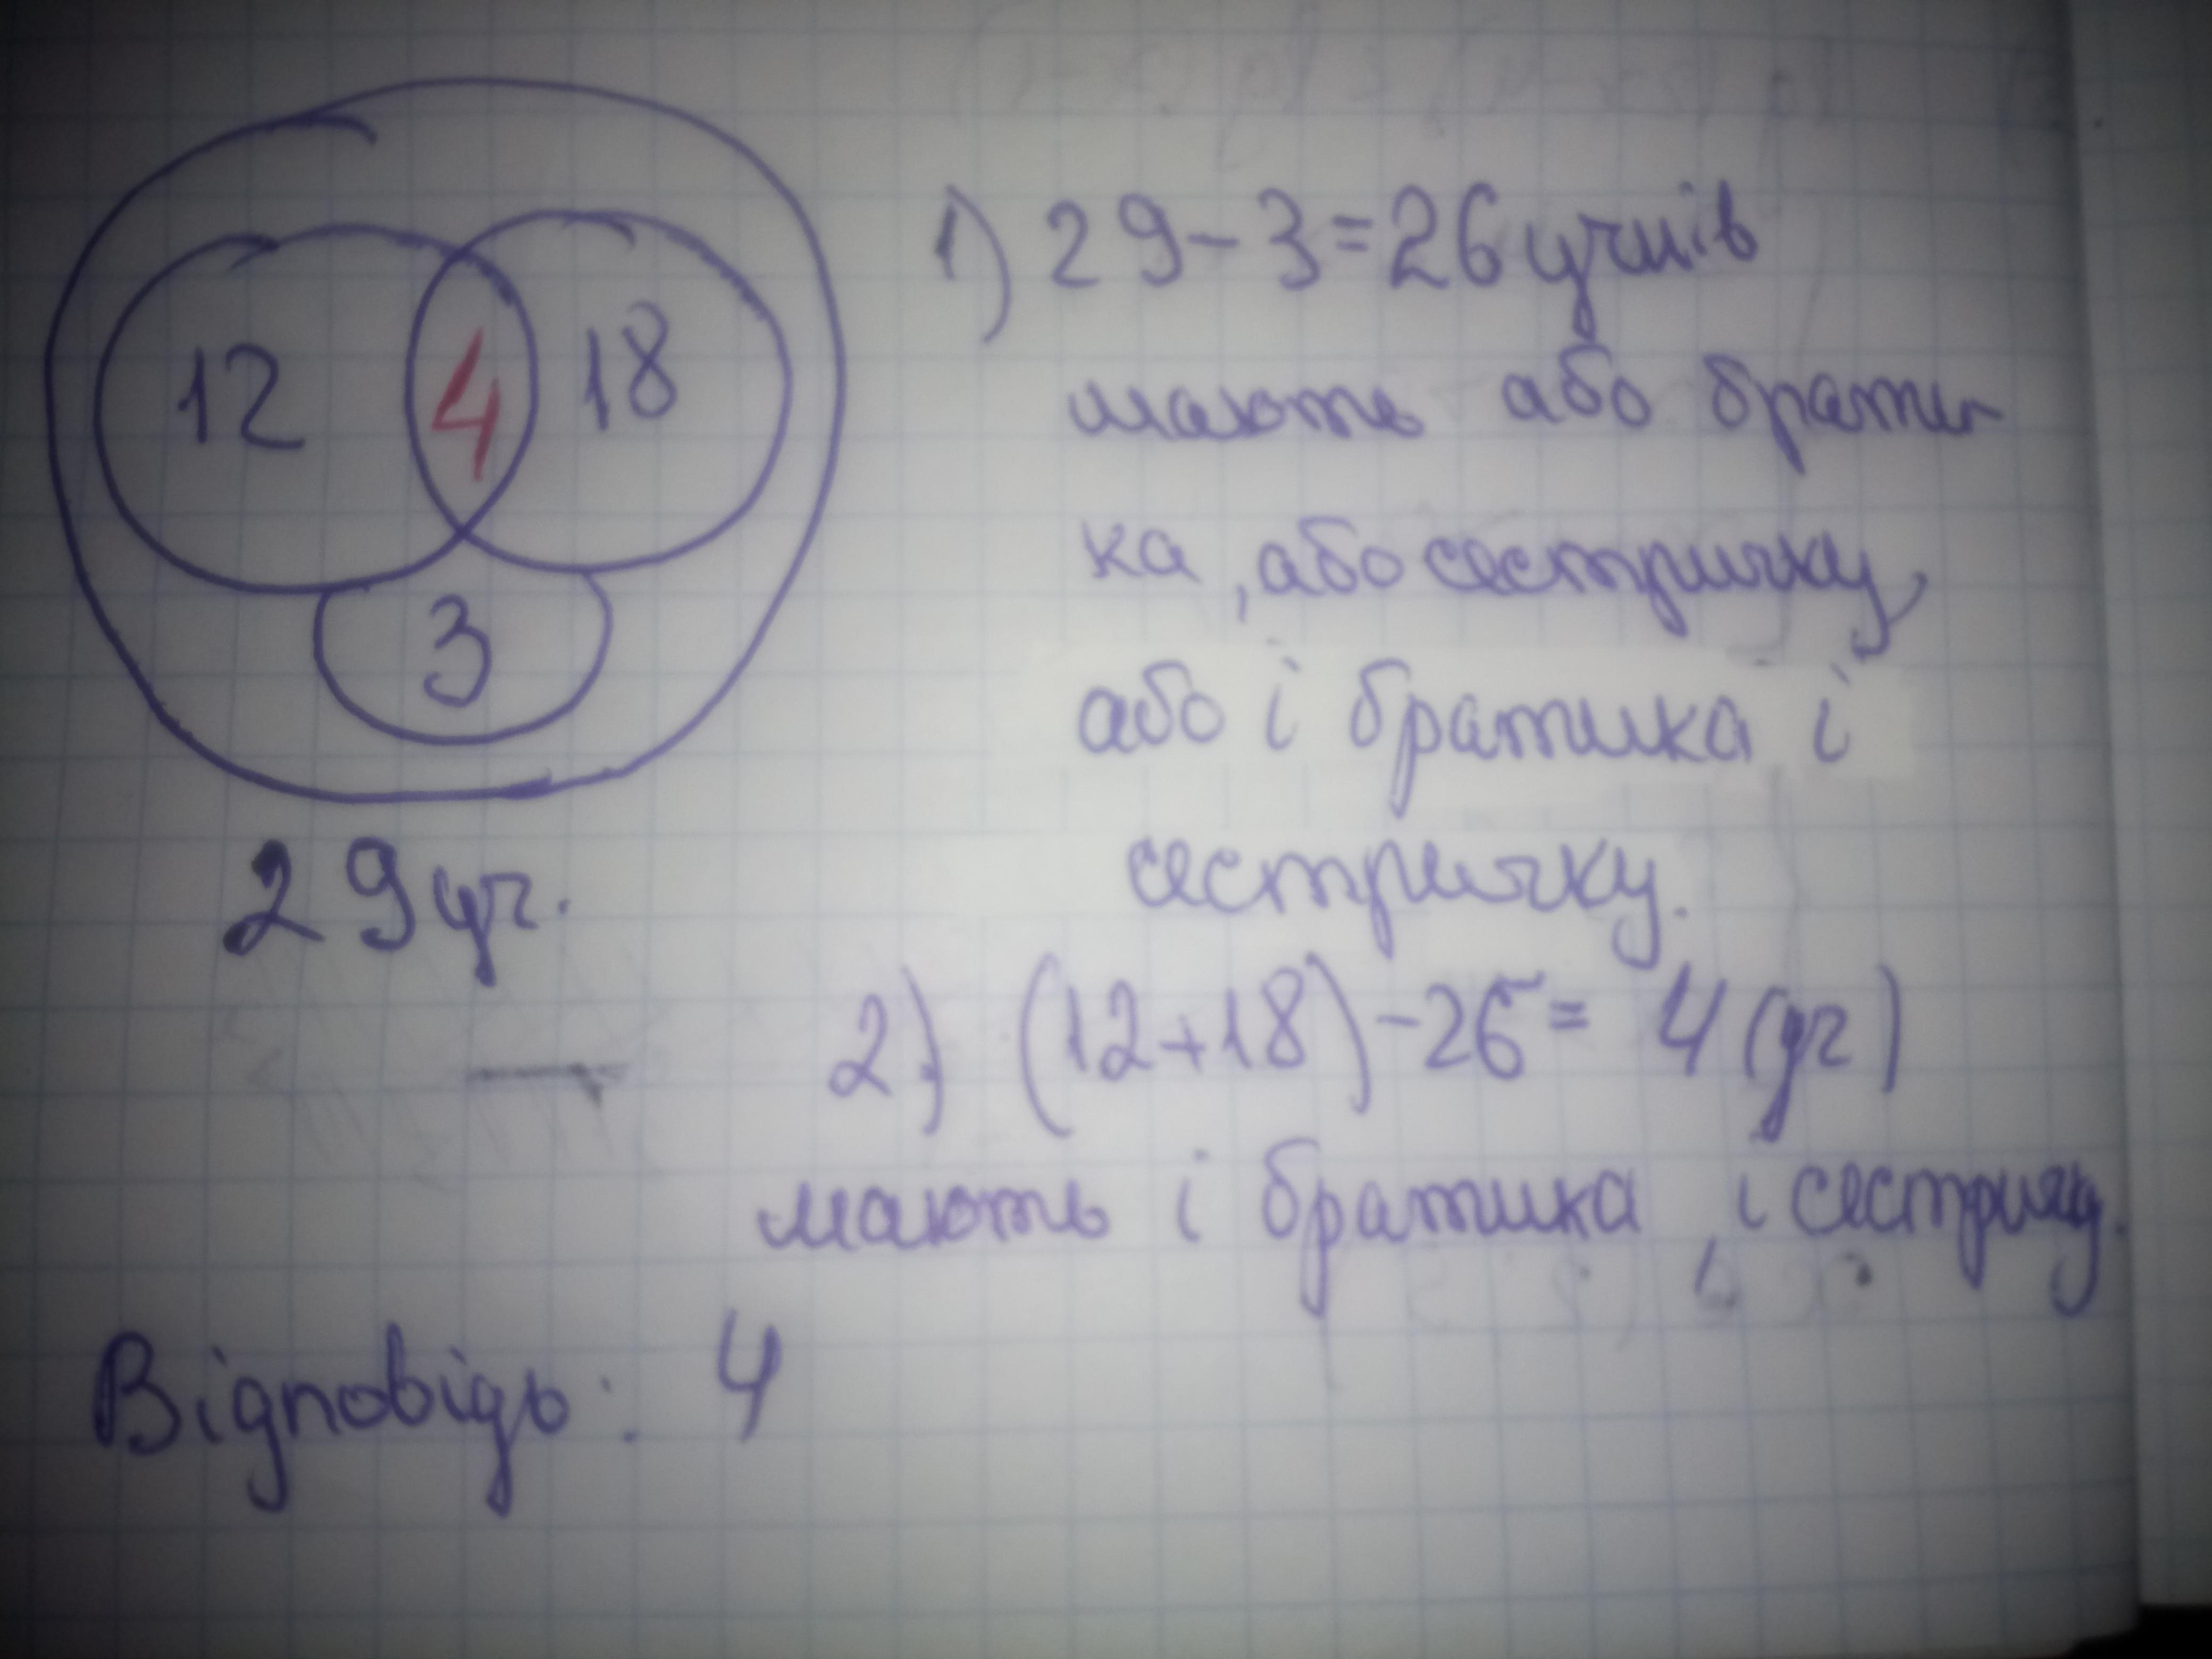 12 4 18
3
29 уч.
1) 29-3=26 учнів
мають або брати-
ка, або сестричку,
або і братика і
сестричку.
2) (12+18)-26= 4 (уч)
мають і братика, і сестричку.
Відповідь: 4